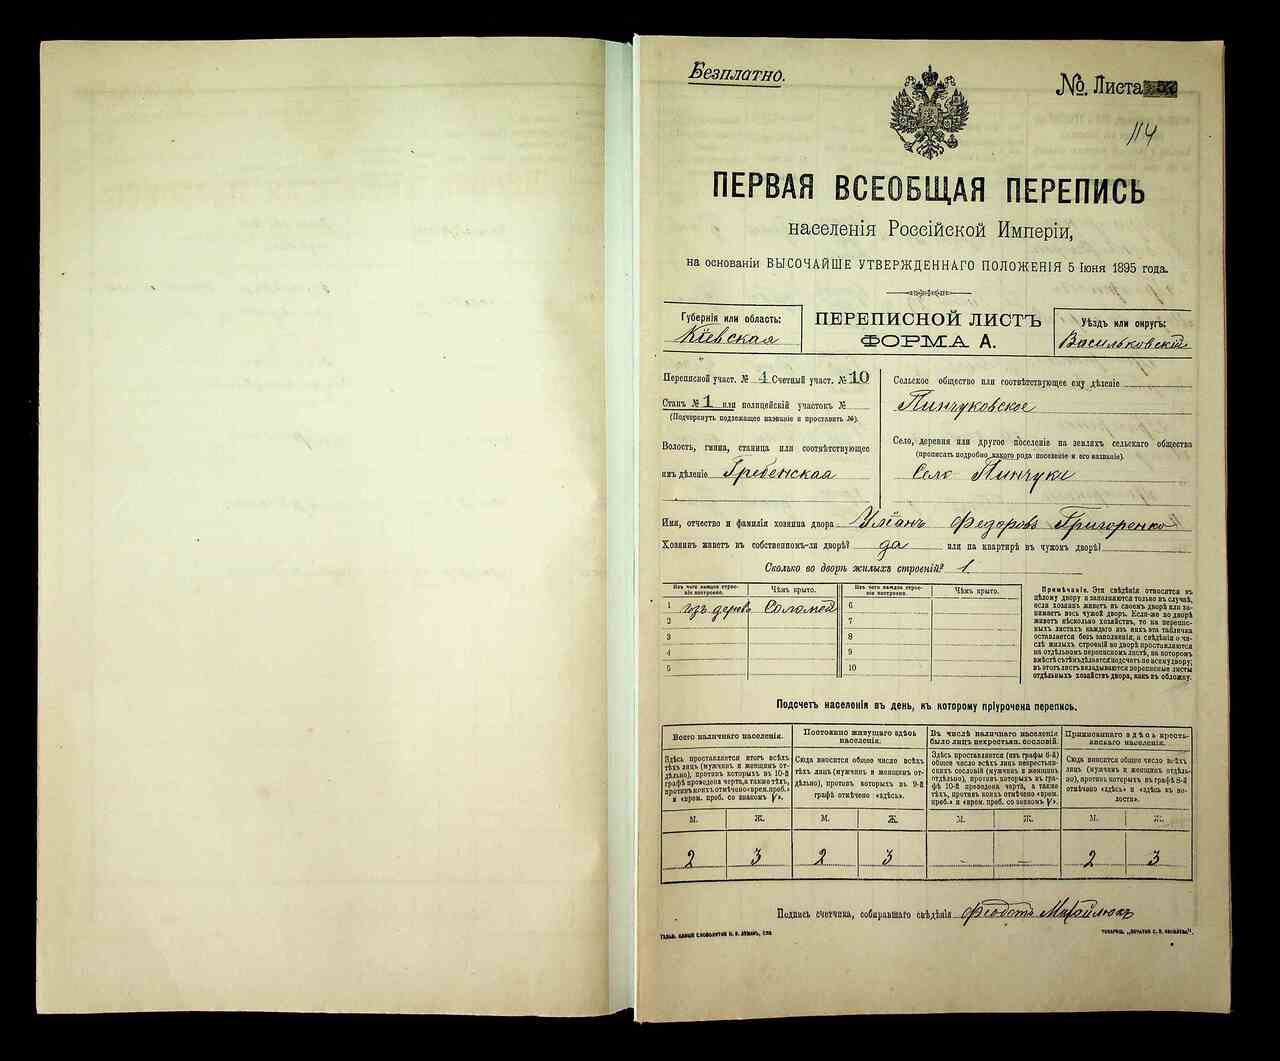 Безплатно.
№. Листа
114
ПЕРВАЯ ВСЕОБЩАЯ ПЕРЕПИСЬ
населенія Россійской Имперіи,
на основаніи ВЫСОЧАЙШЕ УТВЕРЖДЕННАГО ПОЛОЖЕНІЯ 5 Іюня 1895 года.
Губернія или область:
Кіевская
ПЕРЕПИСНОЙ ЛИСТЪ
ФОРМА А.
Уѣздъ или округъ:
Васильковскій
Переписной участ. № 1 Счетный участ. № 10
Станъ № 1 или полицейскій участокъ №
(Подчеркнуть подлежащее названіе и проставить №).
Волость, гмина, станица или соотвѣтствующее
имъ дѣленіе Гребенская
Сельское общество или соотвѣтствующее ему дѣленіе
Пинчуковское
Село, деревня или другое поселеніе на земляхъ сельскаго общества
(прописать подробно какого рода поселеніе и его названіе).
Село Пинчуки
Имя, отчество и фамилія хозяина двора Уліянъ Федоровъ Григоренко
Хозяинъ живетъ въ собственномъ-ли дворѣ? да или на квартирѣ въ чужомъ дворѣ?
Сколько во дворѣ жилыхъ строеній? 1.
Изъ чего каждое строе-
ніе построено.
Чѣмъ крыто.
Изъ чего каждое строе-
ніе построено.
Чѣмъ крыто.
1 изъ дерева Соломой 6
2 7
3 8
4 9
5 10
Примѣчаніе. Эти свѣдѣнія относятся къ
цѣлому двору и заполняются только въ случаѣ,
если хозяинъ живетъ въ своемъ дворѣ или за-
нимаетъ весь чужой дворъ. Если-же во дворѣ
живетъ нѣсколько хозяйствъ, то на перепис-
ныхъ листахъ каждаго изъ нихъ эта табличка
оставляется безъ заполненія, а свѣдѣнія о чи-
слѣ жилыхъ строеній во дворѣ проставляются
на отдѣльномъ переписномъ листѣ, на которомъ
вмѣстѣ съ тѣмъ дѣлается подсчетъ по всему двору;
въ этотъ листъ вкладываются переписные листы
отдѣльныхъ хозяйствъ двора, какъ въ обложку.
Подсчетъ населенія въ день, къ которому пріурочена перепись.
Всего наличнаго населенія.
Постоянно живущаго здѣсь
населенія.
Въ числѣ наличнаго населенія
было лицъ некрестьян. сословій.
Приписаннаго здѣсь кресть-
янскаго населенія.
Здѣсь проставляется итогъ всѣхъ
тѣхъ лицъ (мужчинъ и женщинъ от-
дѣльно), противъ которыхъ въ 10-й
графѣ проведена черта, а также тѣхъ,
противъ коихъ отмѣчено «врем. преб.»
и «врем. преб. со знакомъ V».
Сюда вносится общее число всѣхъ
тѣхъ лицъ (мужчинъ и женщинъ от-
дѣльно), противъ которыхъ въ 9-й
графѣ отмѣчено «здѣсь».
Здѣсь проставляется (изъ графы 6-й)
общее число всѣхъ лицъ некрестьян-
скихъ сословій (мужчинъ и женщинъ
отдѣльно), противъ которыхъ въ гра-
фѣ 10-й проведена черта, а также
тѣхъ, противъ коихъ отмѣчено «врем.
преб.» и «врем. преб. со знакомъ V».
Сюда вносится общее число всѣхъ
лицъ (мужчинъ и женщинъ отдѣль-
но), противъ которыхъ въ графѣ 8-й
отмѣчено «здѣсь» и «здѣсь въ во-
лости».
М. Ж. М. Ж. М. Ж. М. Ж.
2 3 2 3 - - 2 3
Подпись счетчика, собиравшаго свѣдѣнія Феодотъ Михайлюкъ